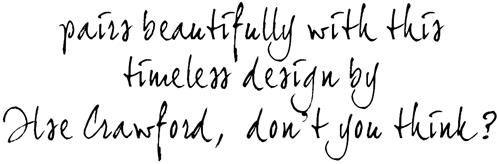 pairs beautifully with this
timeless design by
Ilse Crawford, don't you think?